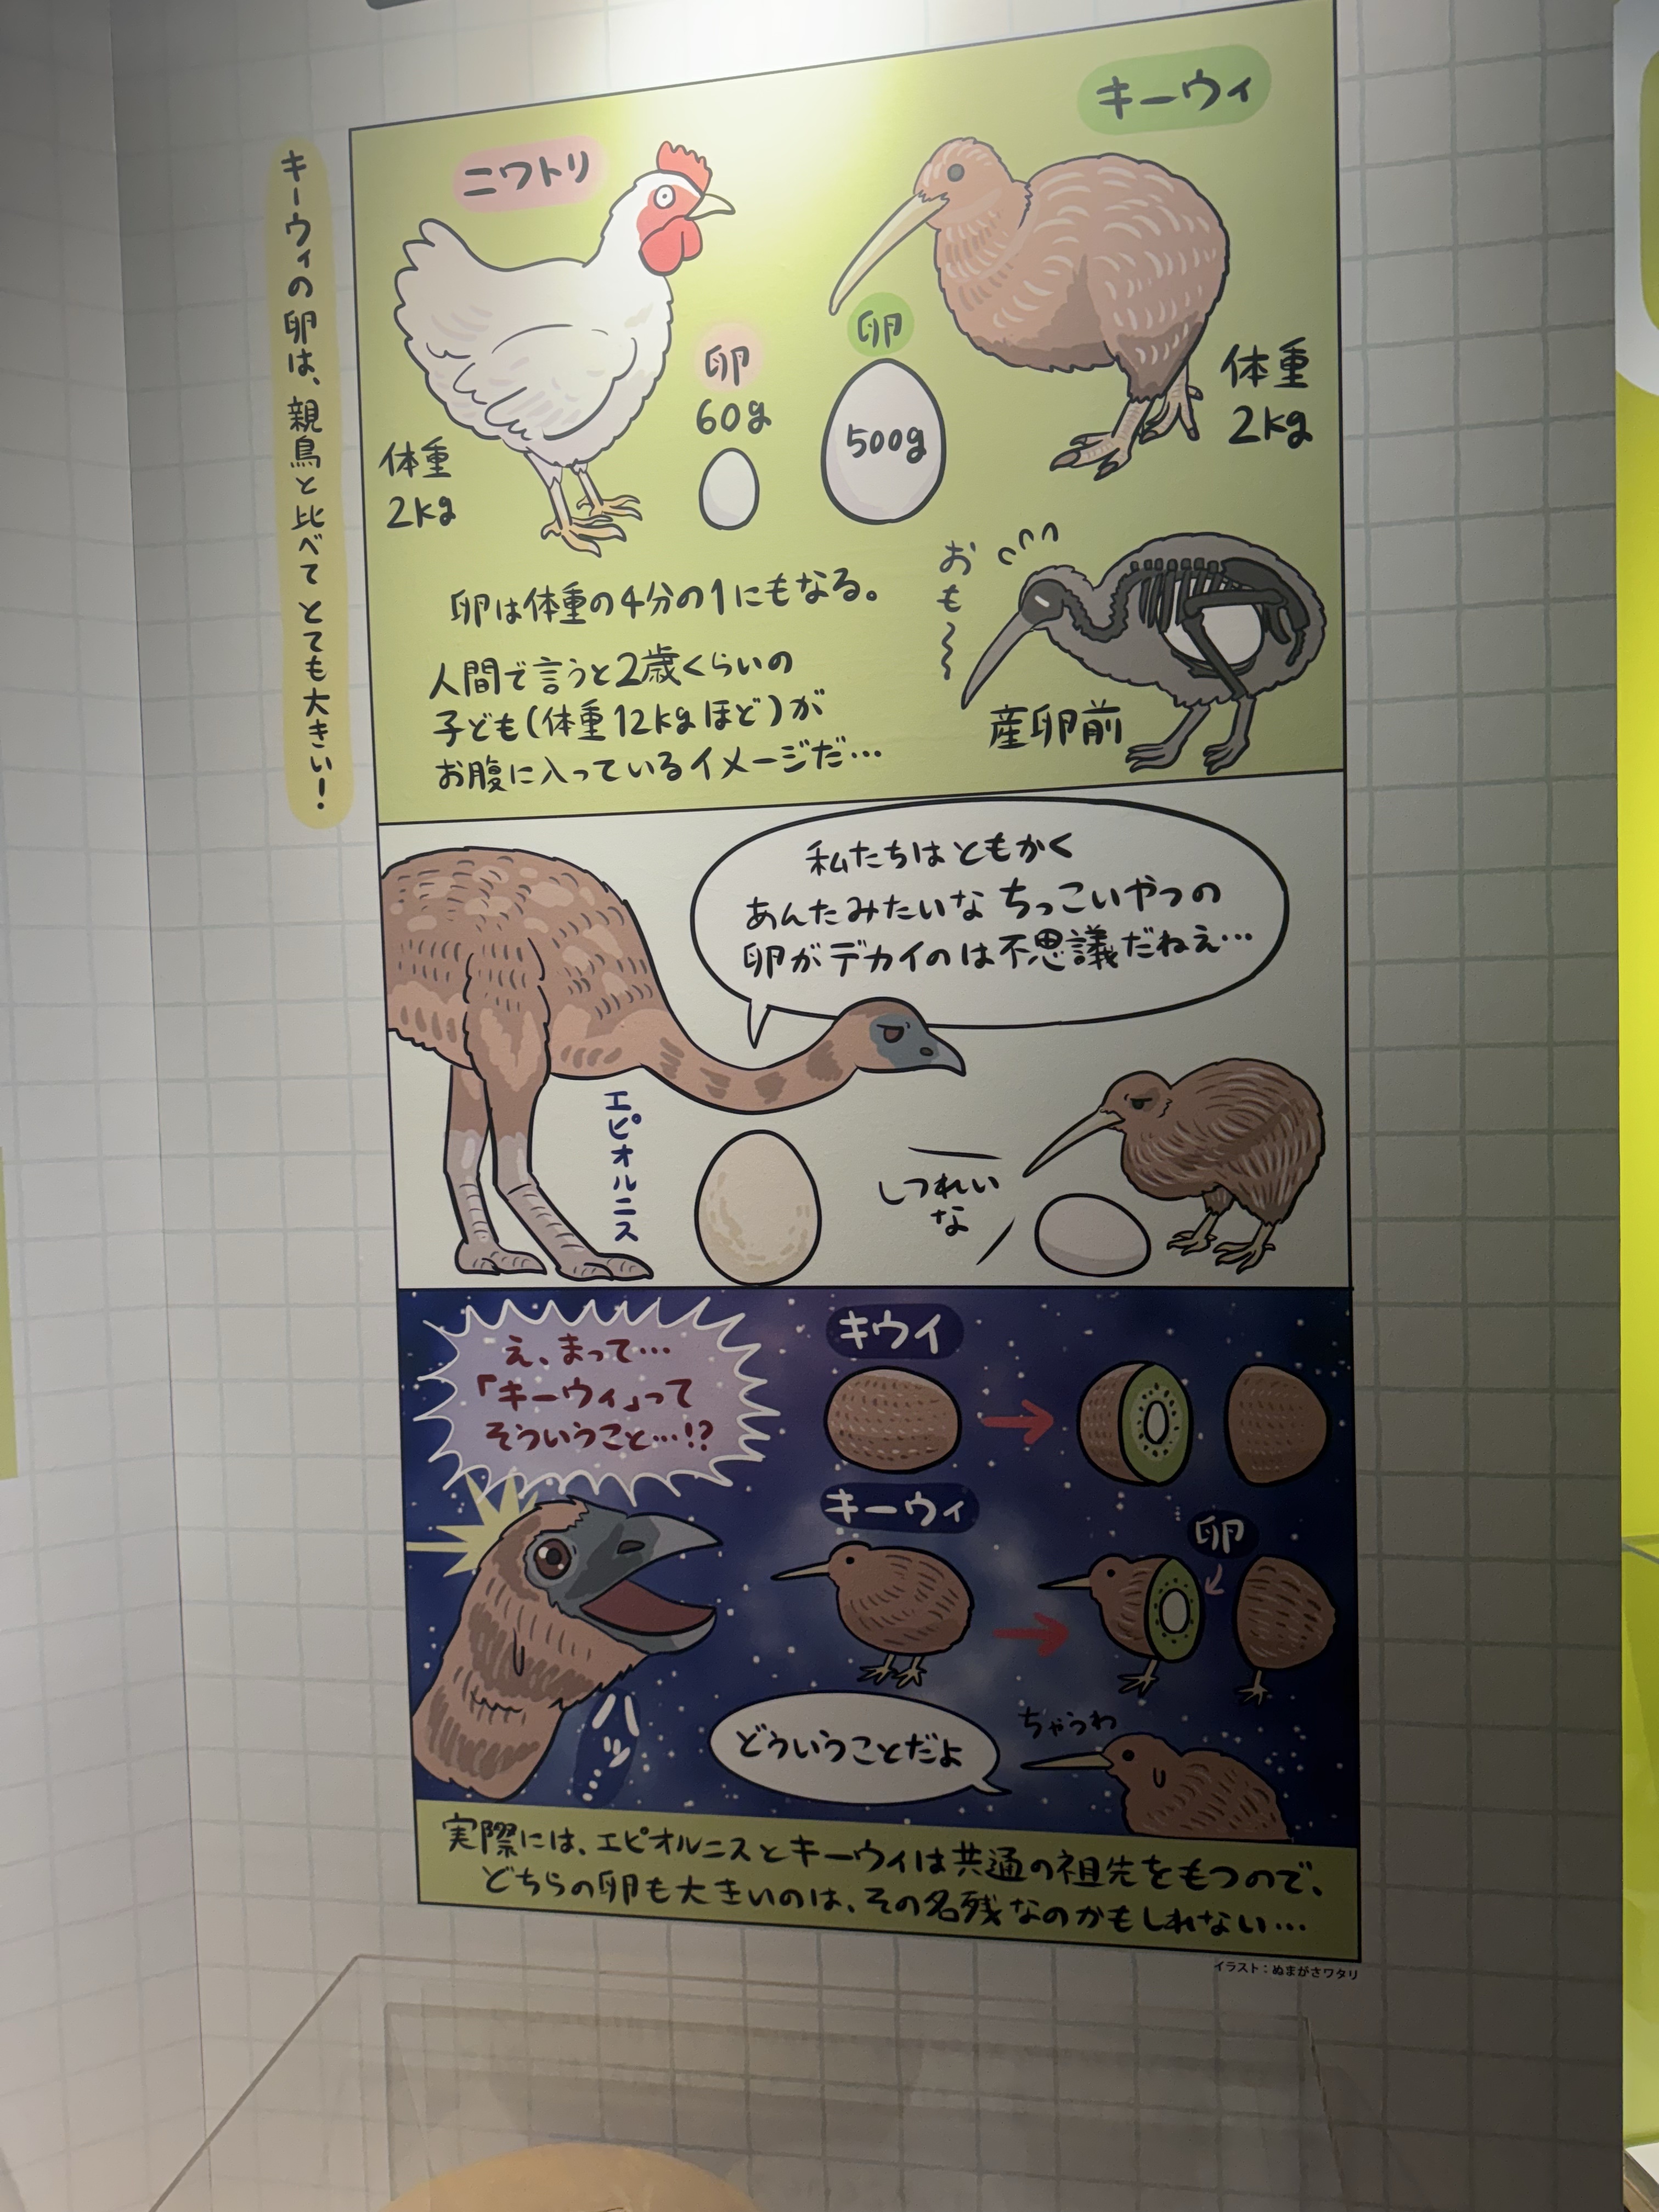 キーウィの卵は、親鳥と比べてとても大きい!
ニワトリ
キーウィ
卵
60g
卵
500g
体重
2kg
体重
2kg
卵は体重の4分の1にもなる。
人間で言うと2歳くらいの
子ども(体重12kgほど)が
お腹に入っているイメージだ…
おも〜
産卵前
私たちはともかく
あんたみたいなちっこいやつの
卵がデカイのは不思議だねえ…
エピオルニス
しつれい
な
え、まって…
「キーウィ」って
そういうこと…!?
キウイ
キーウィ
卵
ハッ…
どういうことだよ
ちゃうわ
実際には、エピオルニスとキーウィは共通の祖先をもつので、
どちらの卵も大きいのは、その名残なのかもしれない…
イラスト:ぬまがさワタリ